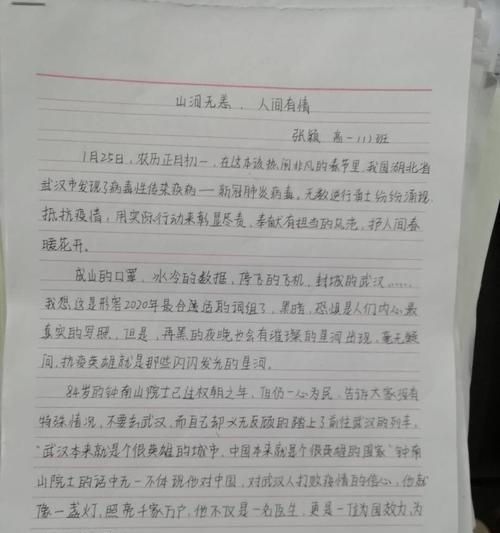 山河无恙，人间有情
张颖 高一11)班
1月25日，农历正月初一，在这本该热闹非凡的春节里，我国湖北省
武汉市发现了病毒性传染疫病——新冠肺炎病毒。无数逆行勇士纷纷涌现
抵抗疫情，用实际行动来彰显尽责、奉献有担当的风范，护人间春
暖花开。
成山的口罩，冰冷的数据，停飞的飞机，封城的武汉……
我想这是形容2020年最合适的词组了，黑暗，恐惧是人们内心最
真实的写照，但是，再黑的夜晚也会有璀璨的星河出现，毫无疑
问，抗疫英雄就是那些闪闪发光的星河。
84岁的钟南山院士已往杖朝之年，但仍一心为民，告诉大家没有
特殊情况，不要去武汉，而自己却义无反顾的踏上了前往武汉的列车，
“武汉本来就是个很英雄的城市、中国本来就是个很英雄的国家”钟南
山院士的话中无一不体现他对中国，对武汉人打败疫情的信心，他就
像一盏灯，照亮千家万户，他不仅是一名医生，更是一位为国效力，为